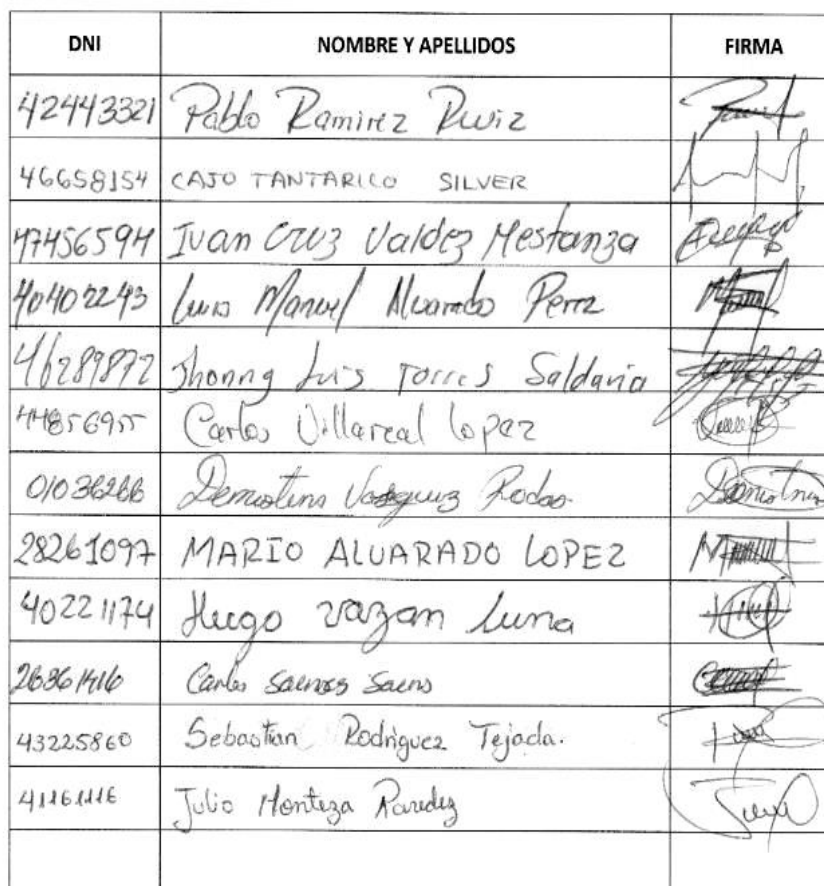 DNI NOMBRE Y APELLIDOS FIRMA
42443321 Pablo Ramirez Ruiz
46658154 CAJO TANTARICO SILVER
47456594 Ivan Cruz Valdez Mestanza
40402243 Luis Manuel Alvarado Perez
46289872 Jhonny Luis Torres Saldaña
44856955 Carlos Villareal Lopez
01036266 Vasquez Rodas
28261097 MARIO ALVARADO LOPEZ
40221174 Hugo vazan luna
Carlos Saens
43225860 Sebastian Rodriguez Tejada.
41161116 Julio Monteza Paredez